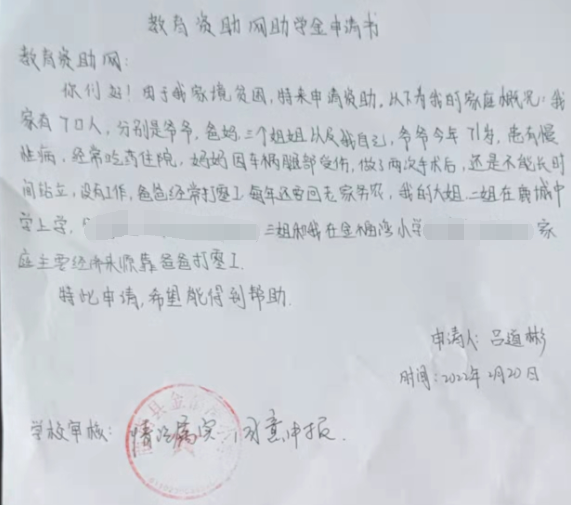 教育资助网助学金申请书
教育资助网:
你们好!由于我家境贫困,特来申请资助,以下为我的家庭概况:我
家有70人,分别是爷爷,爸妈,三个姐姐以及我自己,爷爷今年71岁,患有慢
性病,经常吃药住院,妈妈因车祸腿部受伤,做了两次手术后,还是不能长时
间站立,没有工作,爸爸经常打零工每年还要回去家务农,我的大姐、二姐在鹿城中
学上学,
三姐和我在金 小学
家
庭主要经济来源靠爸爸打零工.
特此申请,希望能得到帮助.
申请人:吕道彬
时间:2022年2月20日
学校审核:情况属实,同意申报.
县金